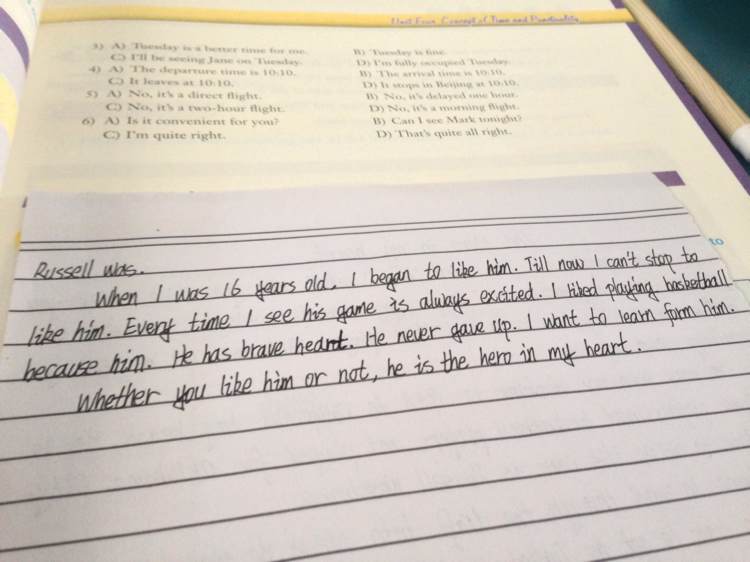 Unit Four Concept of Time and Punctuality
3) A) Tuesday is a better time for me. B) Tuesday is fine.
C) I'll be seeing Jane on Tuesday. D) I'm fully occupied Tuesday.
4) A) The departure time is 10:10. B) The arrival time is 10:10.
C) It leaves at 10:10. D) It stops in Beijing at 10:10.
5) A) No, it's a direct flight. B) No, it's delayed one hour.
C) No, it's a two-hour flight. D) No, it's a morning flight.
6) A) Is it convenient for you? B) Can I see Mark tonight?
C) I'm quite right. D) That's quite all right.
to
Russell was.
When I was 16 years old, I began to like him. Till now I can't stop to
like him. Every time I see his game is always excited. I liked playing basketball
because him. He has brave heart. He never gave up. I want to learn form him.
Whether you like him or not, he is the hero in my heart.